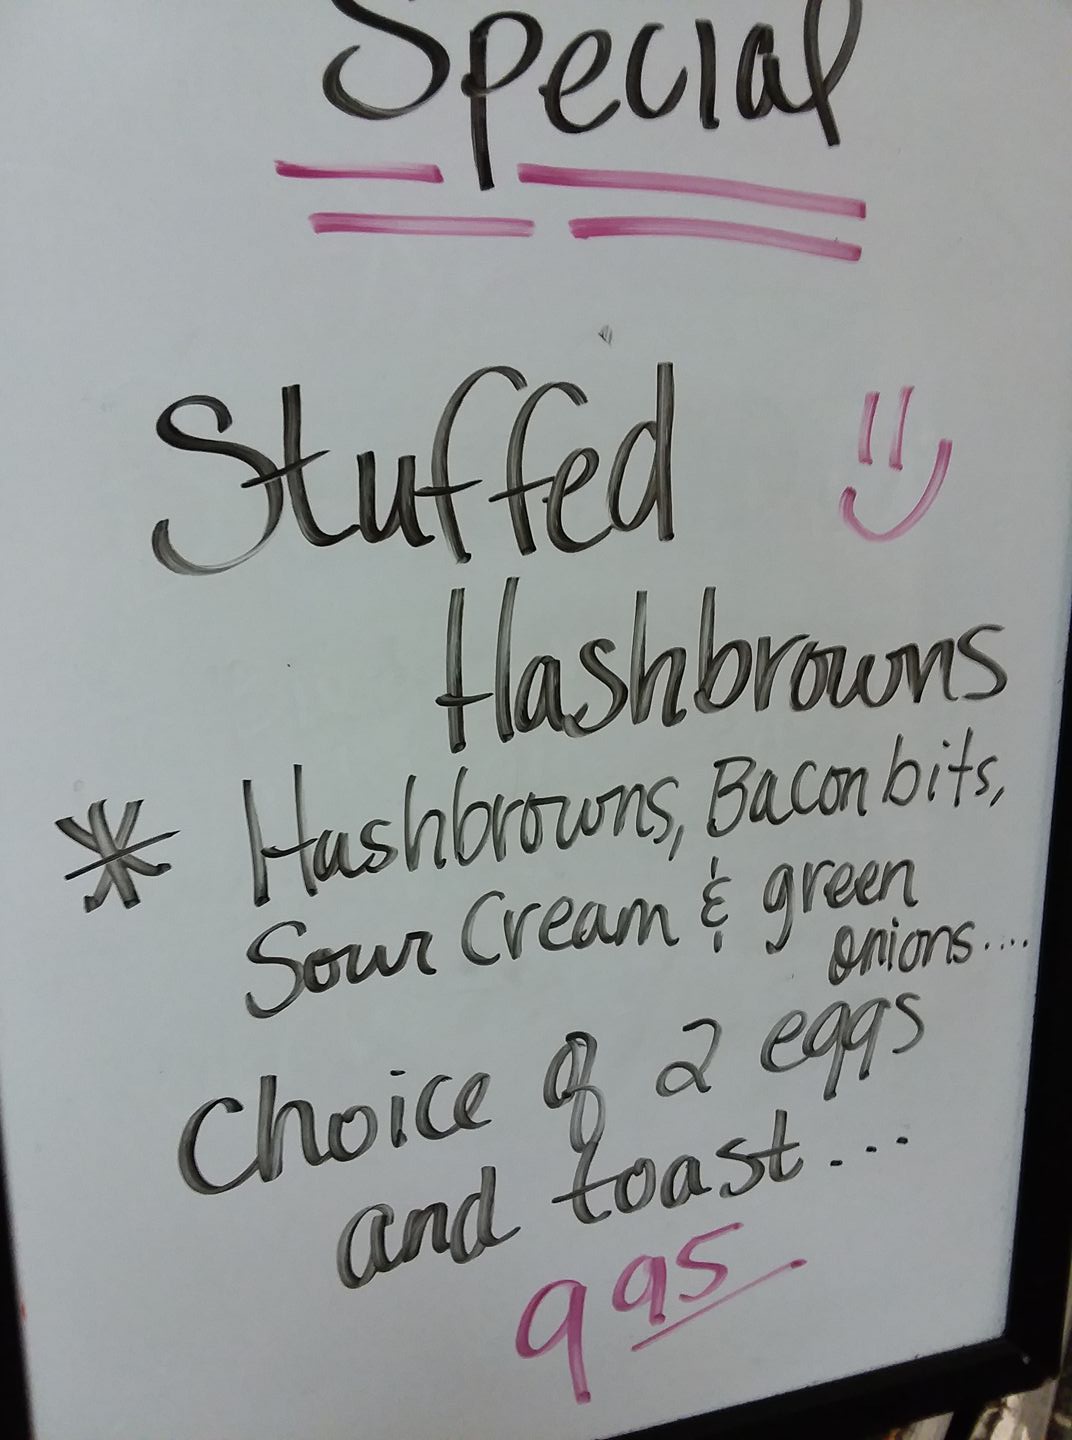 Special
Stuffed
Hashbrowns
* Hashbrowns, Bacon bits,
Sour Cream & green
onions....
Choice of 2 eggs
and toast...
9 95